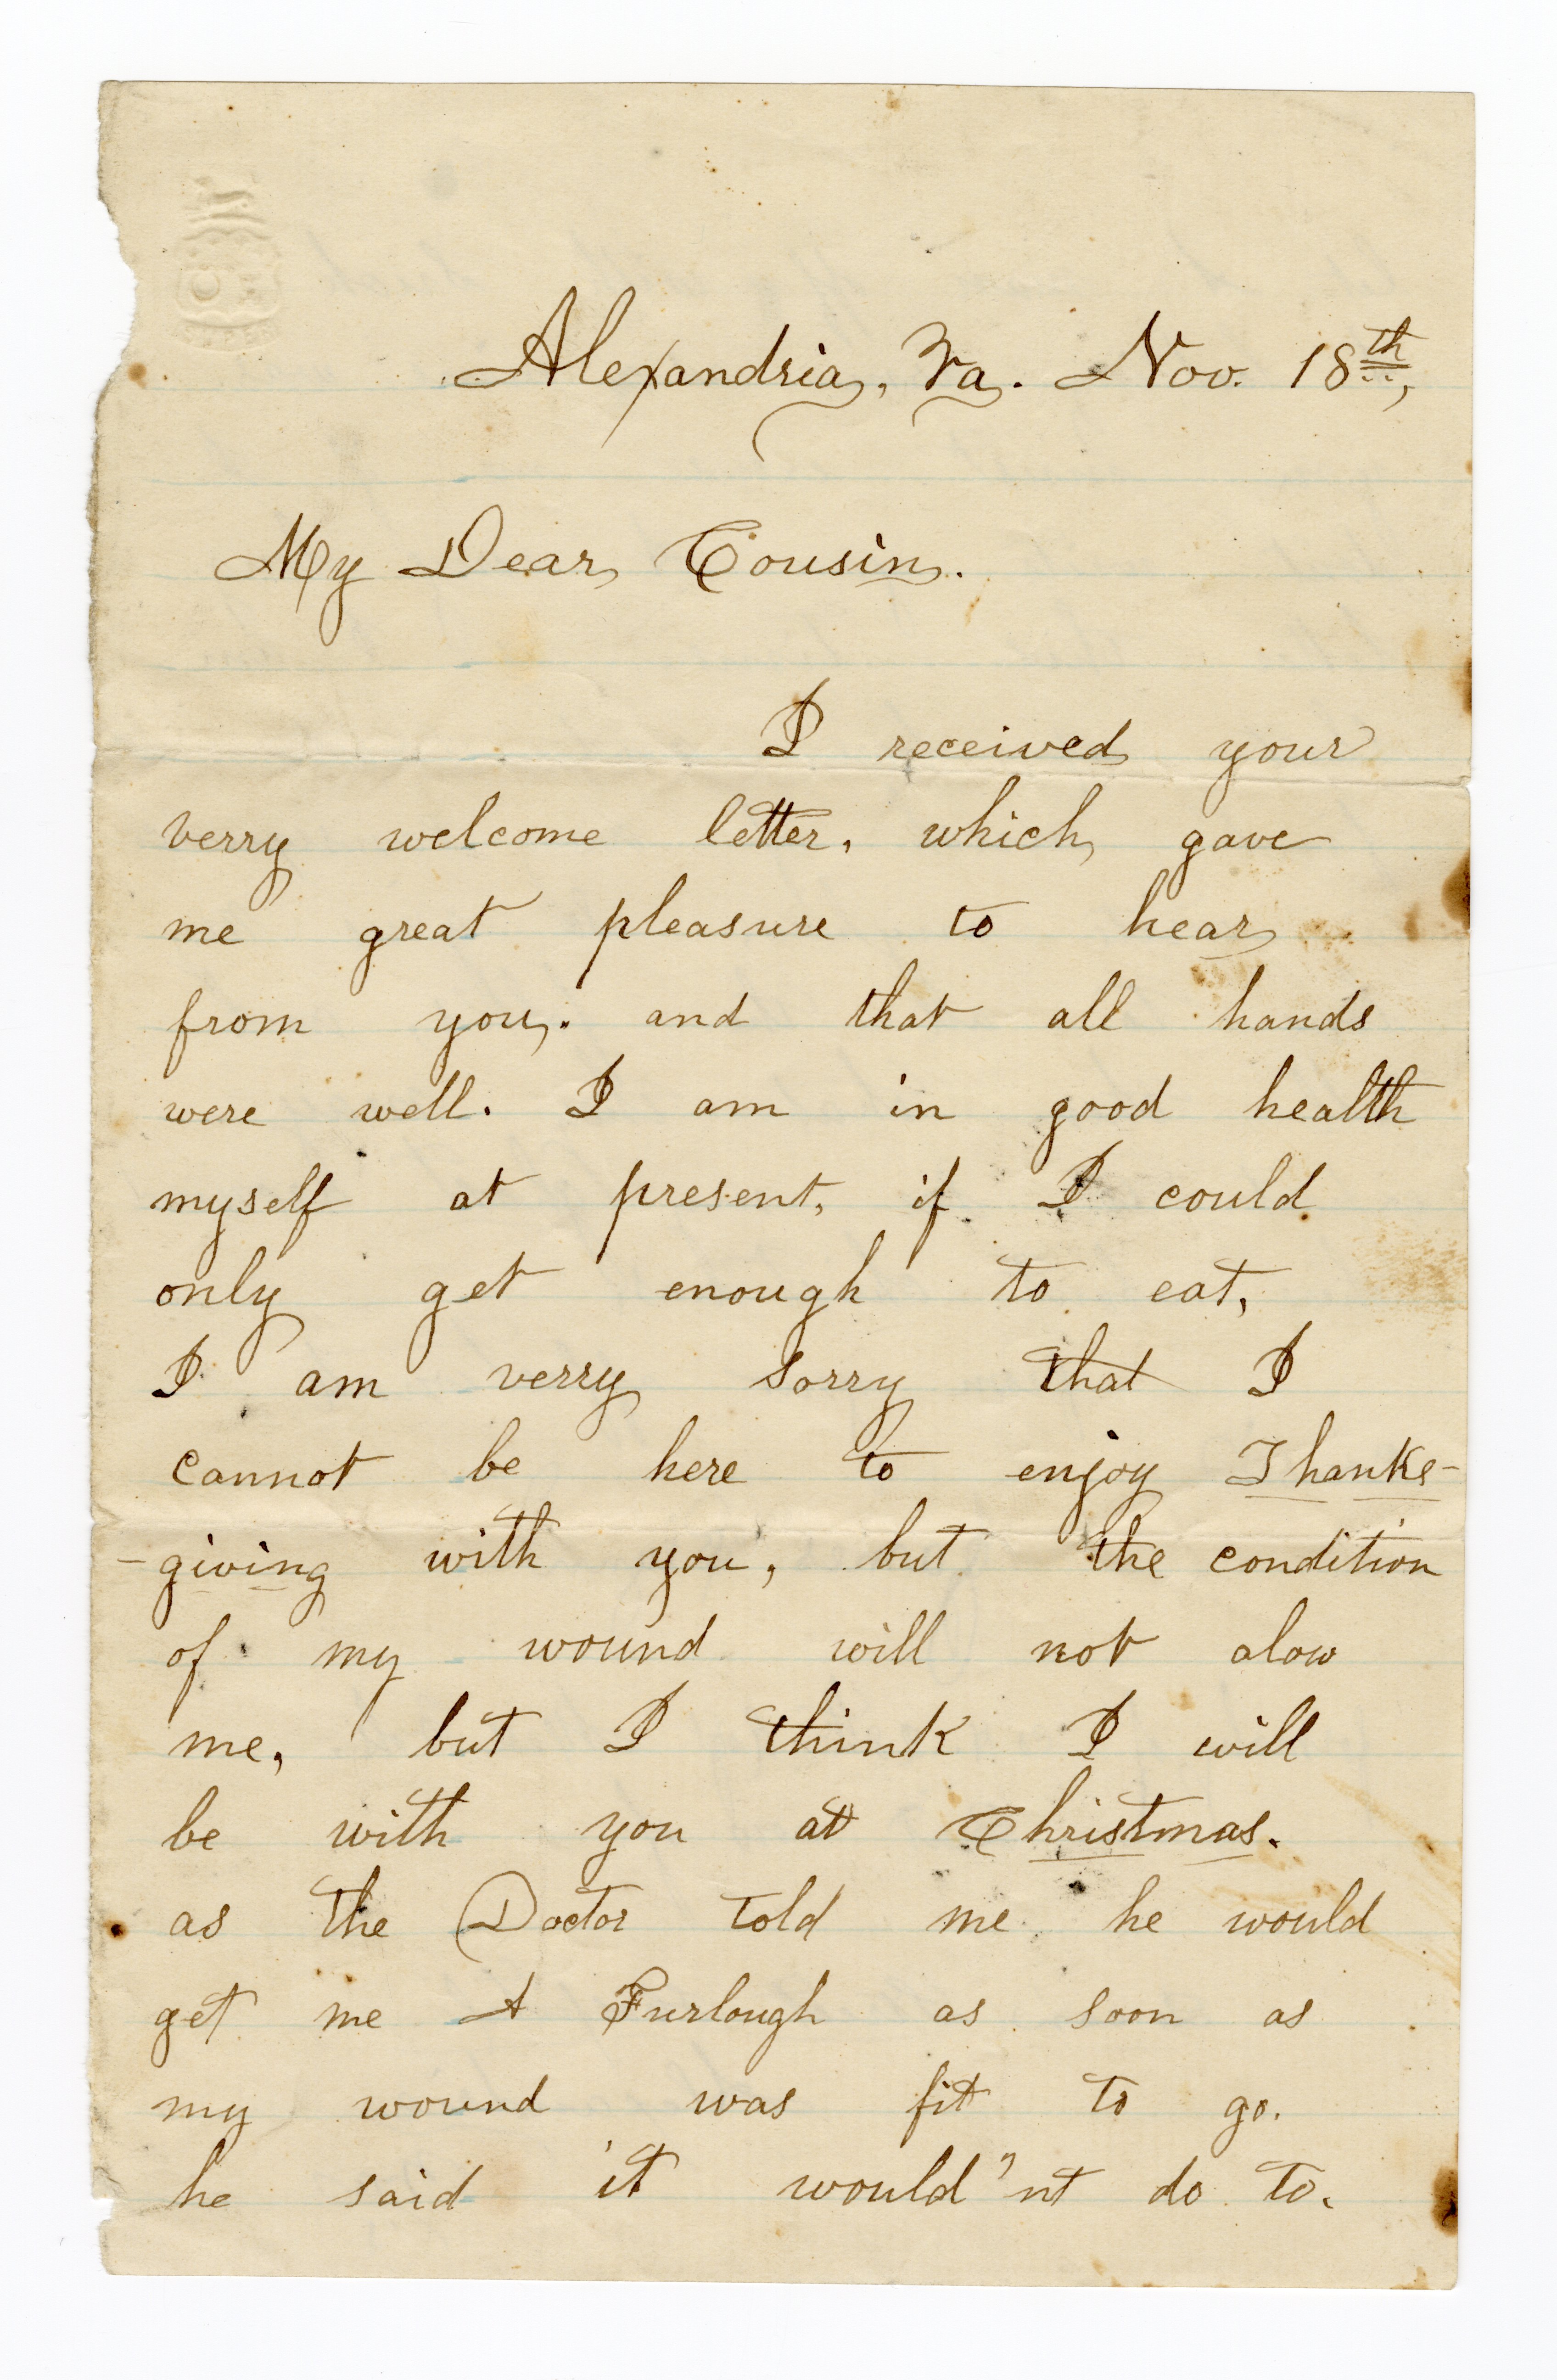 Alexandria, Va. Nov. 18th,
My Dear Cousin.
I received your
verry welcome letter, which gave
me great pleasure to hear
from you, and that all hands
were well. I am in good health
myself at present, if I could
only get enough to eat,
I am verry sorry that I
cannot be here to enjoy Thanks-
-giving with you, but the condition
of my wound will not alow
me, but I think I will
be with you at Christmas.
as the Doctor told me he would
get me A Furlough as soon as
my wound was fit to go.
he said it would'nt do to.